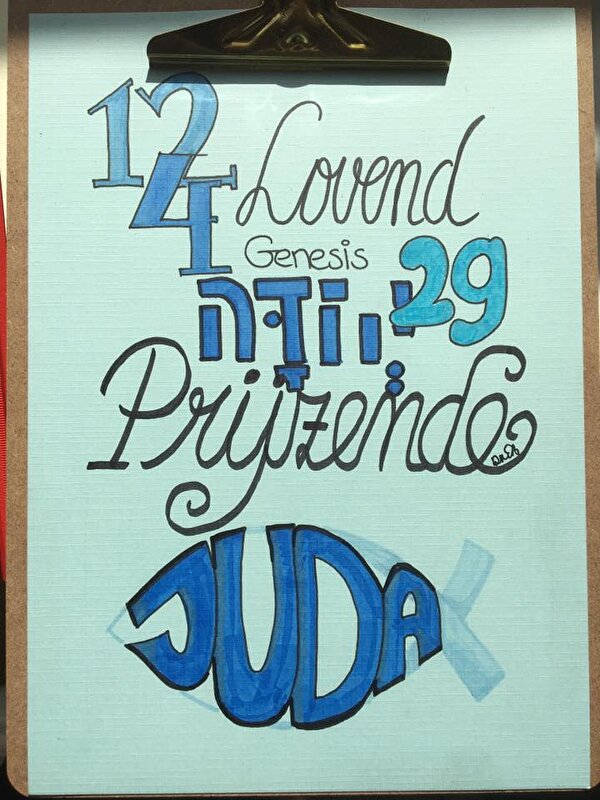 12
4
Lovend
Genesis 29
יְהוּדָה
Prijzende
JUDA